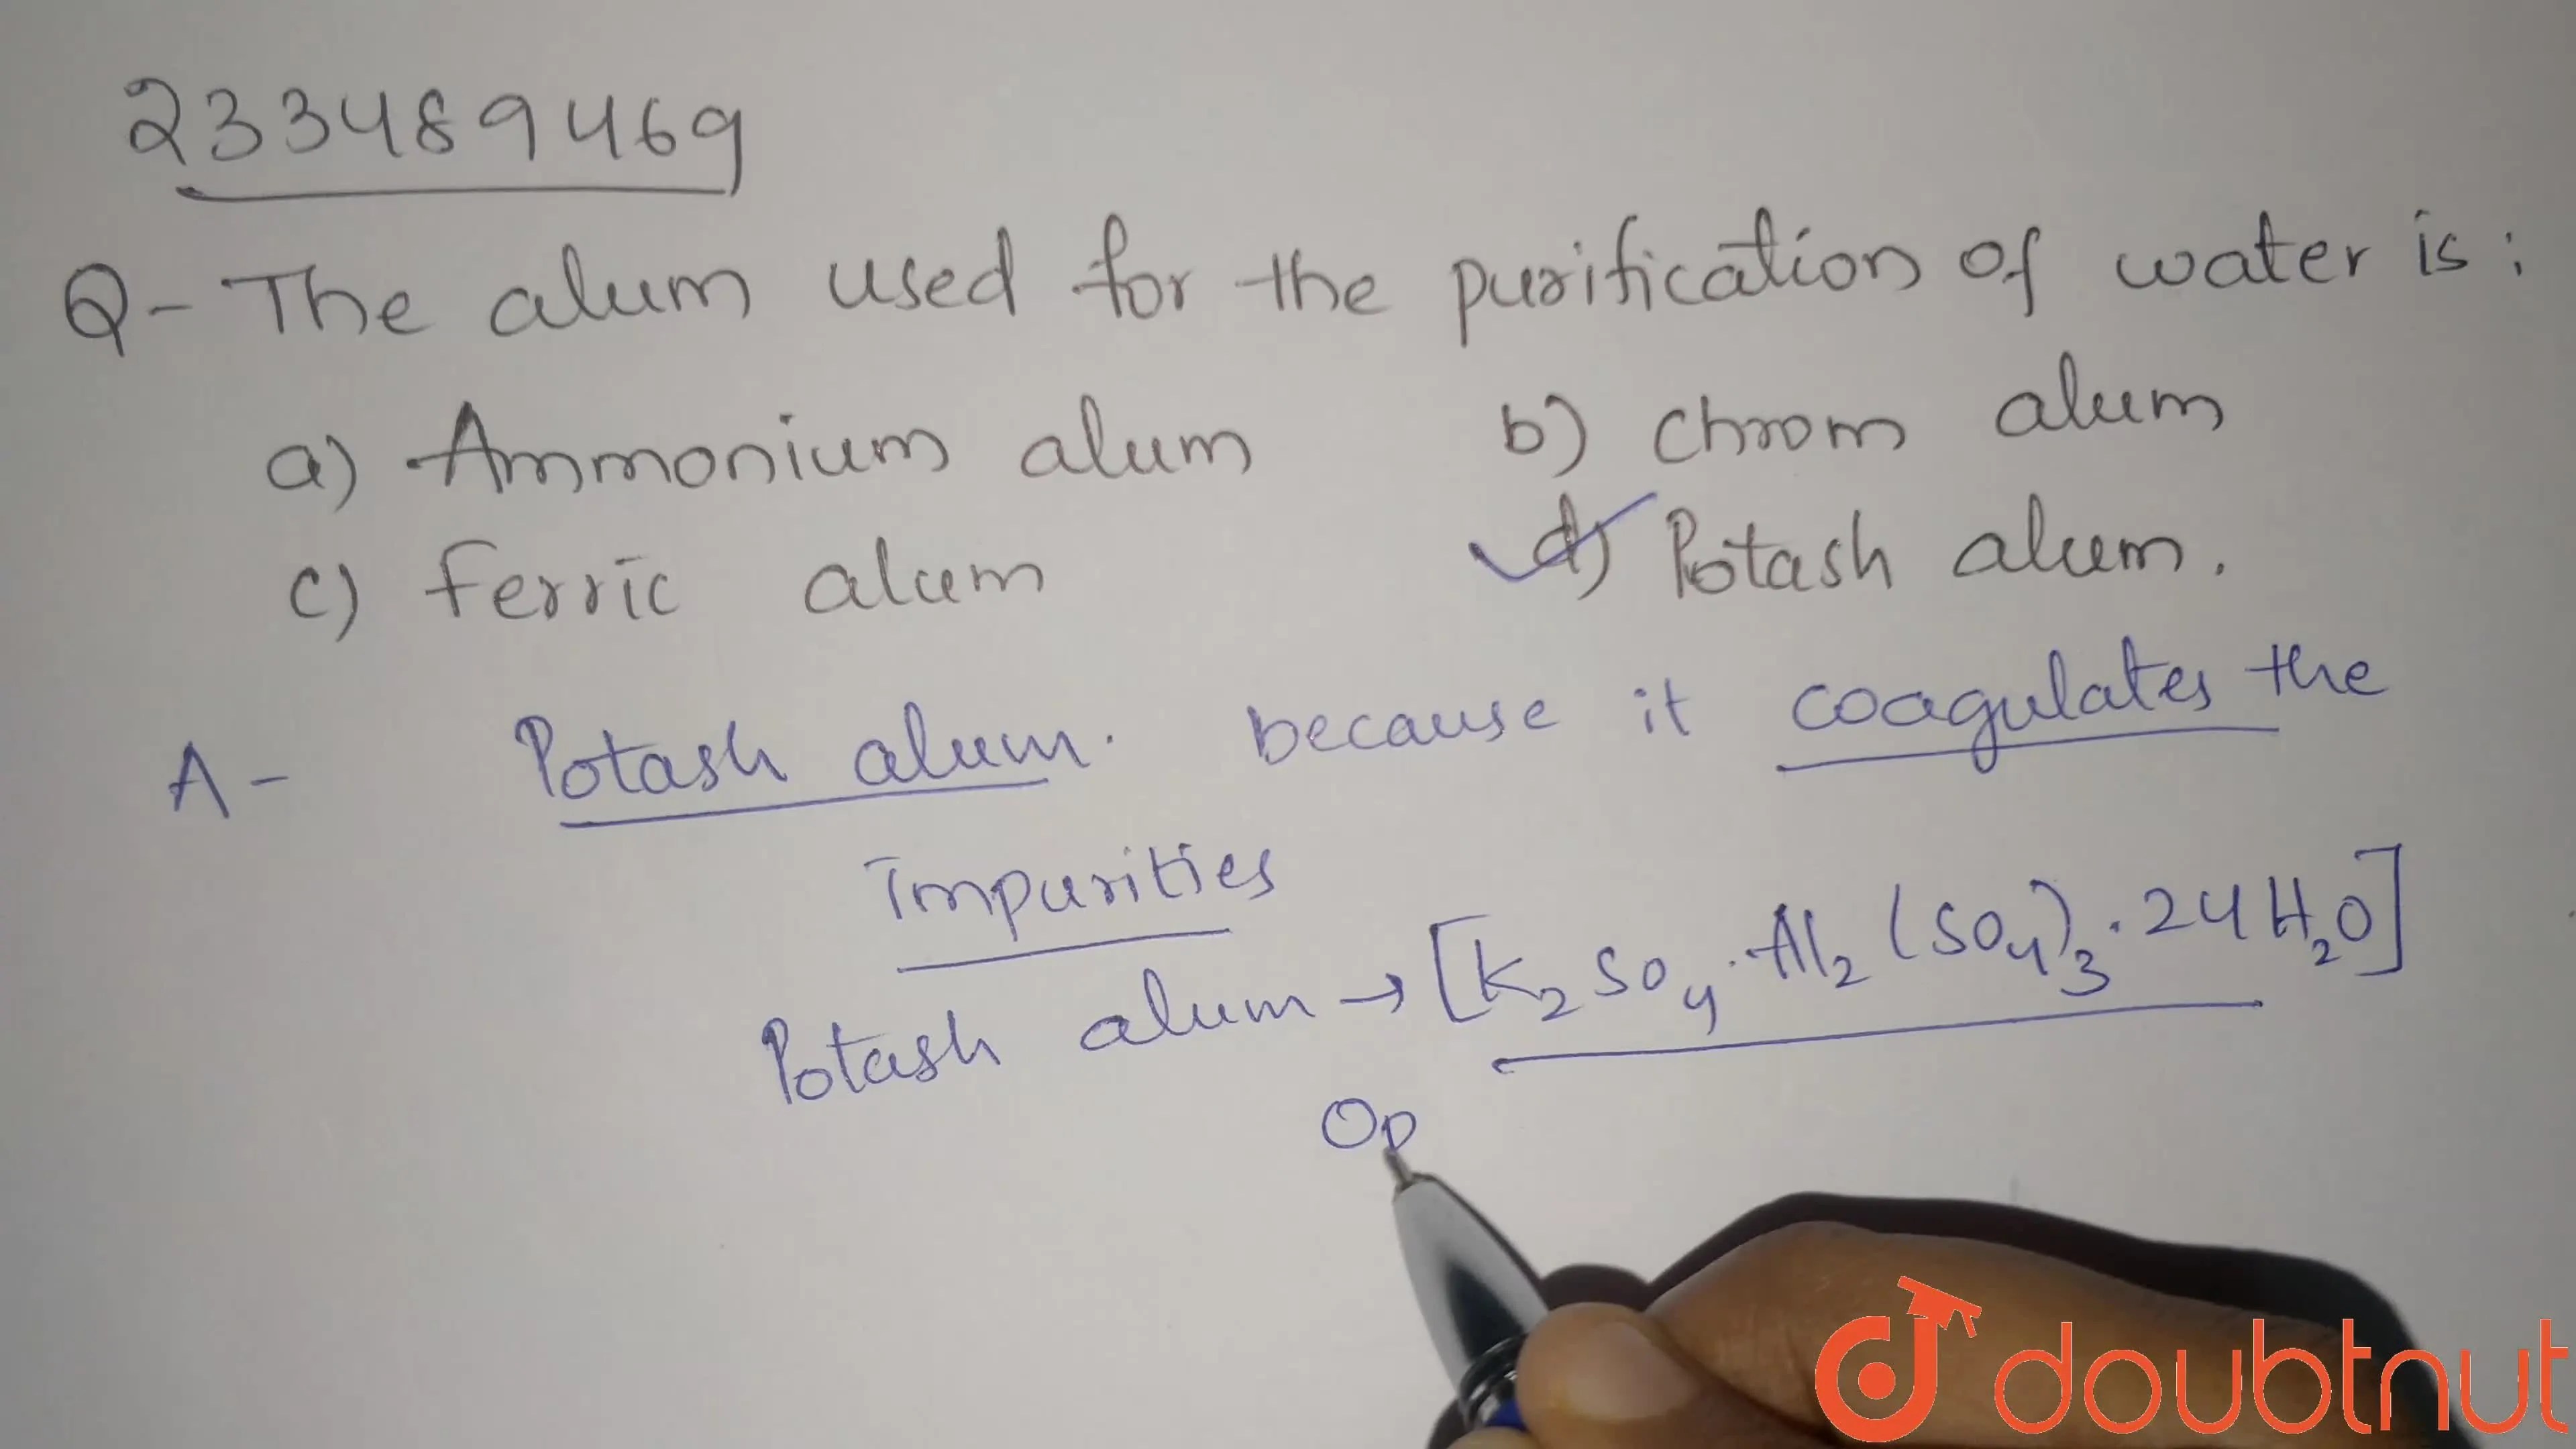 233489469
Q- The alum used for the purification of water is:
a) Ammonium alum b) Chrom alum
c) Ferric alum d) Potash alum.
A- Potash alum. because it coagulates the
Impurities
Potash alum → [K₂SO₄.Al₂(SO₄)₃.24H₂O]
Op
doubtnut